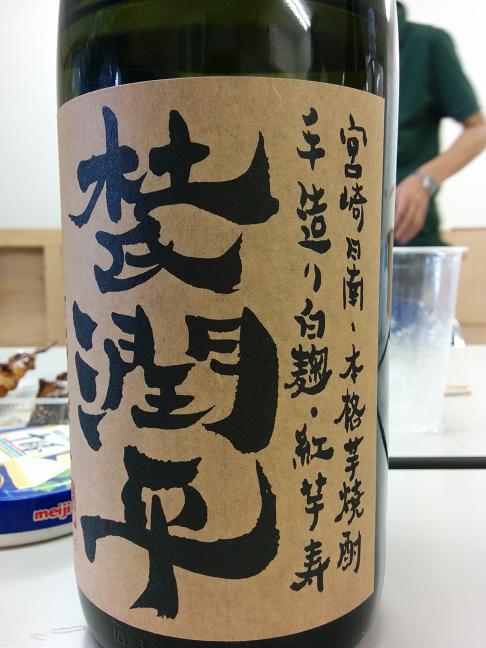 宮崎日南、本格芋焼酎
手造り白麹・紅芋寿
杜氏潤平
meiji